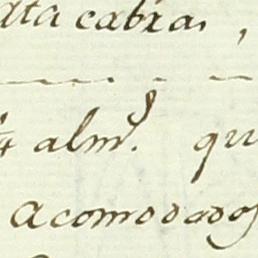 ata cabza,
/4 alms. qu
acomodados